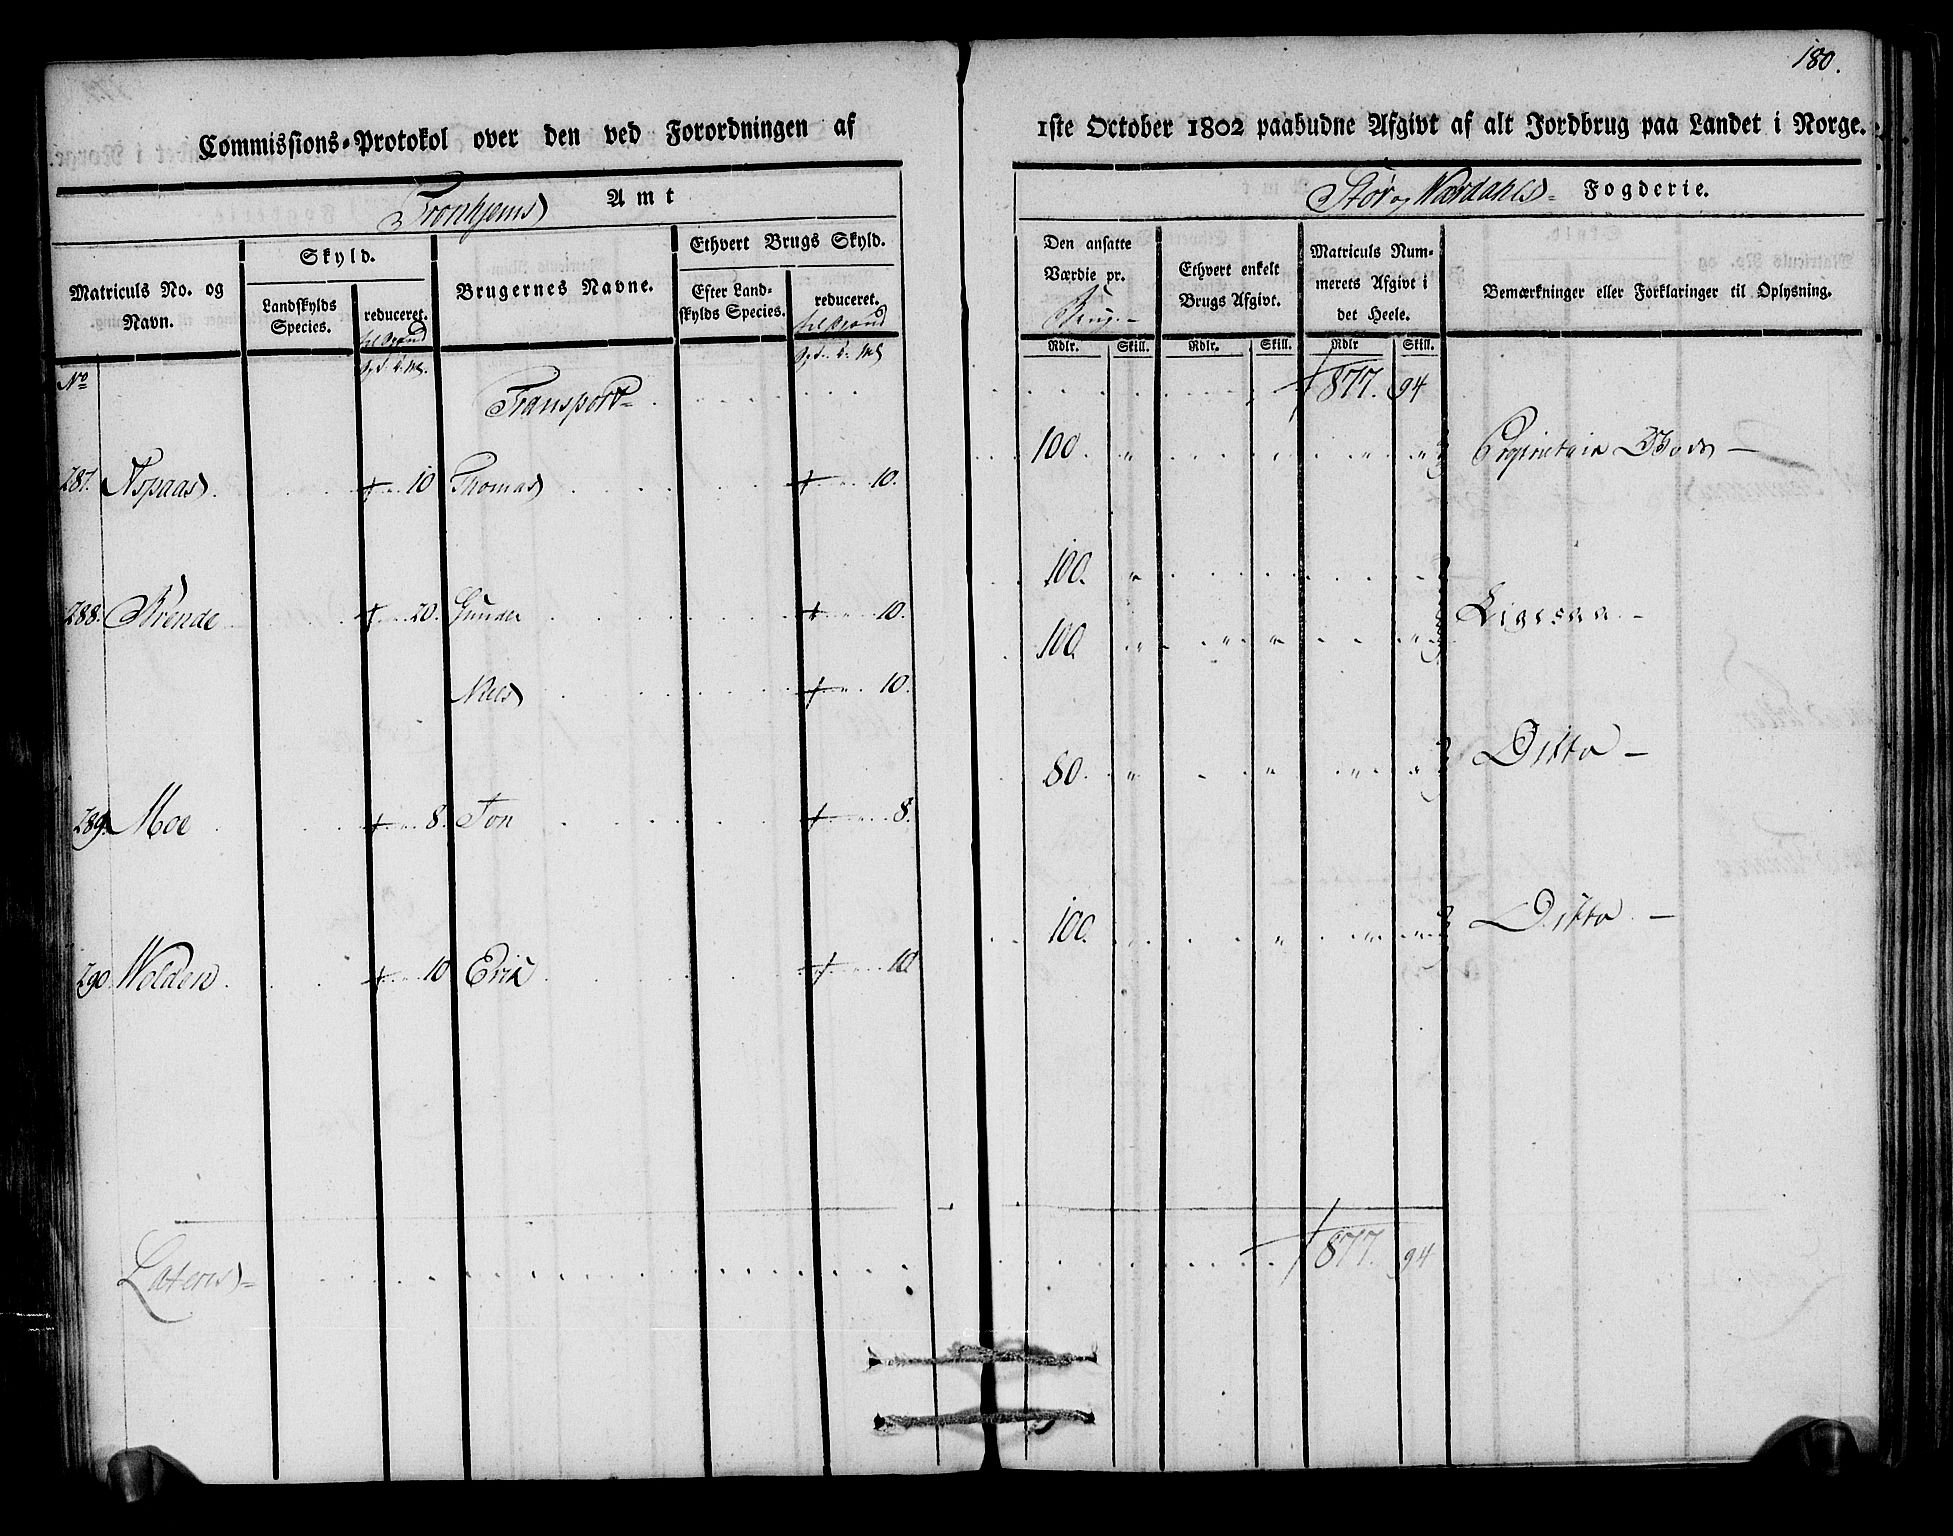 180.
Commissions-Protokol over den ved Forordningen af 1ste October 1802 paabudne Afgivt af alt Jordbrug paa Landet i Norge.
Tronhjems Amt
Stør og Værdahls Fogderie.
Matriculs No. og Navn.
Skyld.
Landskylds Species.
reduceret.
Brugernes Navne.
Ethvert Brugs Skyld.
Efter Landskylds Species.
reduceret.
Den ansatte Værdie pr.
Rdlr. Skill.
Ethvert enkelt Brugs Afgivt.
Rdlr. Skill.
Matriculs Nummerets Afgivt i det Heele.
Rdlr Skill.
Bemærkninger eller Forklaringer til Oplysning.
No
Transport 877. 94
287. Aspaas 10 Thomas 10. 100.
288. Brende 20. Gunder 10. 100. Ligesaa
Niels 10. 100.
289. Moe 8. Jon 8. 80. Ditto
290. Wolden 10 Erik 10 100. Ditto
Lateris 877. 94